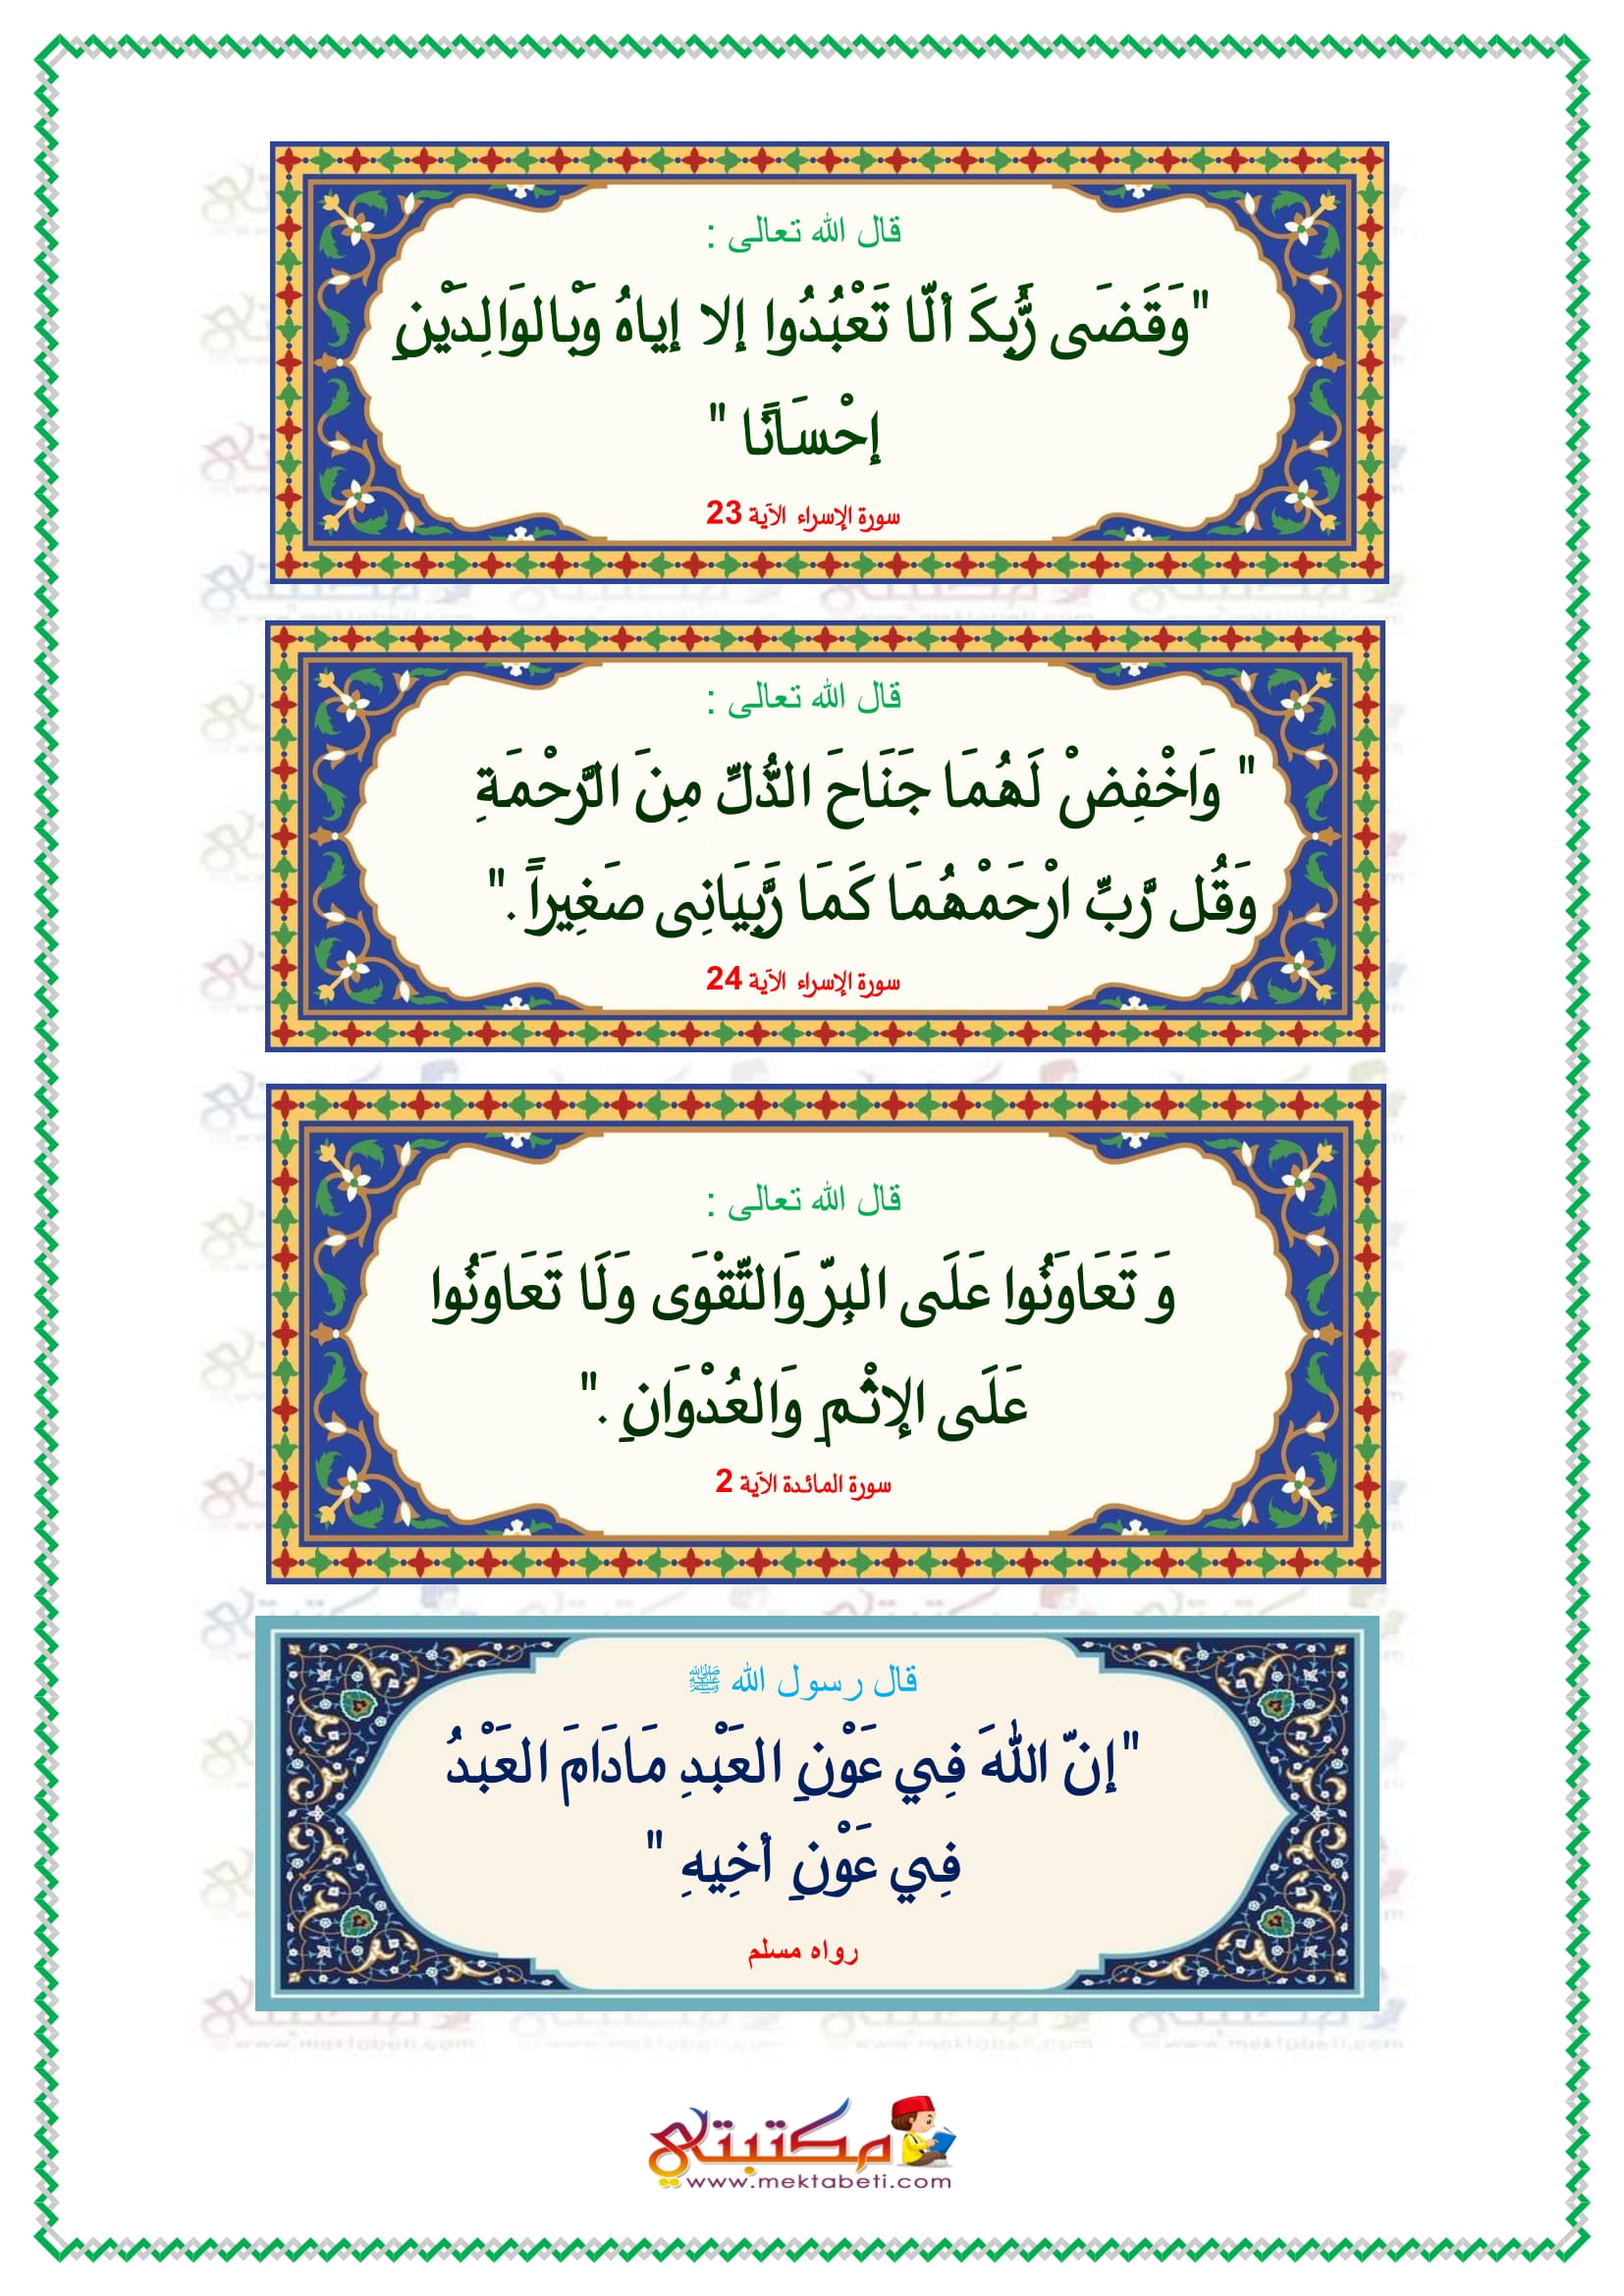 قال الله تعالى :
"وَقَضَى رَّبُّكَ ألّا تَعْبُدُوا إلا إياهُ وَبْالوَالِدَيْنِ
إحْسَانًا "
سورة الإسراء الآية 23
قال الله تعالى :
" وَاخْفِضْ لَهُمَا جَنَاحَ الذُّلِّ مِنَ الرَّحْمَةِ
وَقُل رَّبِّ ارْحَمْهُمَا كَمَا رَّبَيَانِى صَغِيراً ."
سورة الإسراء الآية 24
قال الله تعالى :
وَ تَعَاوَنُوا عَلَى البِرّ وَالتّقْوَى وَلَا تَعَاوَنُوا
عَلَى الإثْمِ وَالعُدْوَانِ ."
سورة المائدة الآية 2
قال رسول الله ﷺ
"إنّ اللهَ فِي عَوْنِ العَبْدِ مَادَامَ العَبْدُ
فِي عَوْنِ أخِيهِ "
رواه مسلم
مكتبتي
www.mektabeti.com